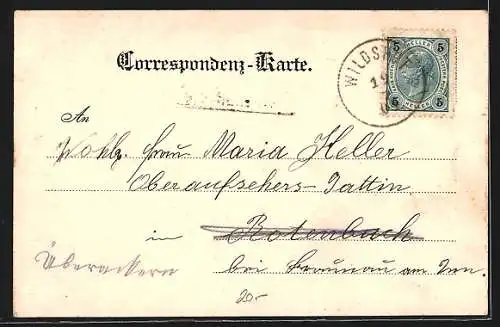 Correspondenz-Karte.
WILDSH
5 5
HELLER
5 5
An
Wohlg. Frau Maria Heller
Oberaufsehers-Gattin
in Rotenbach
Überackern bei Braunau am Inn.
20.-